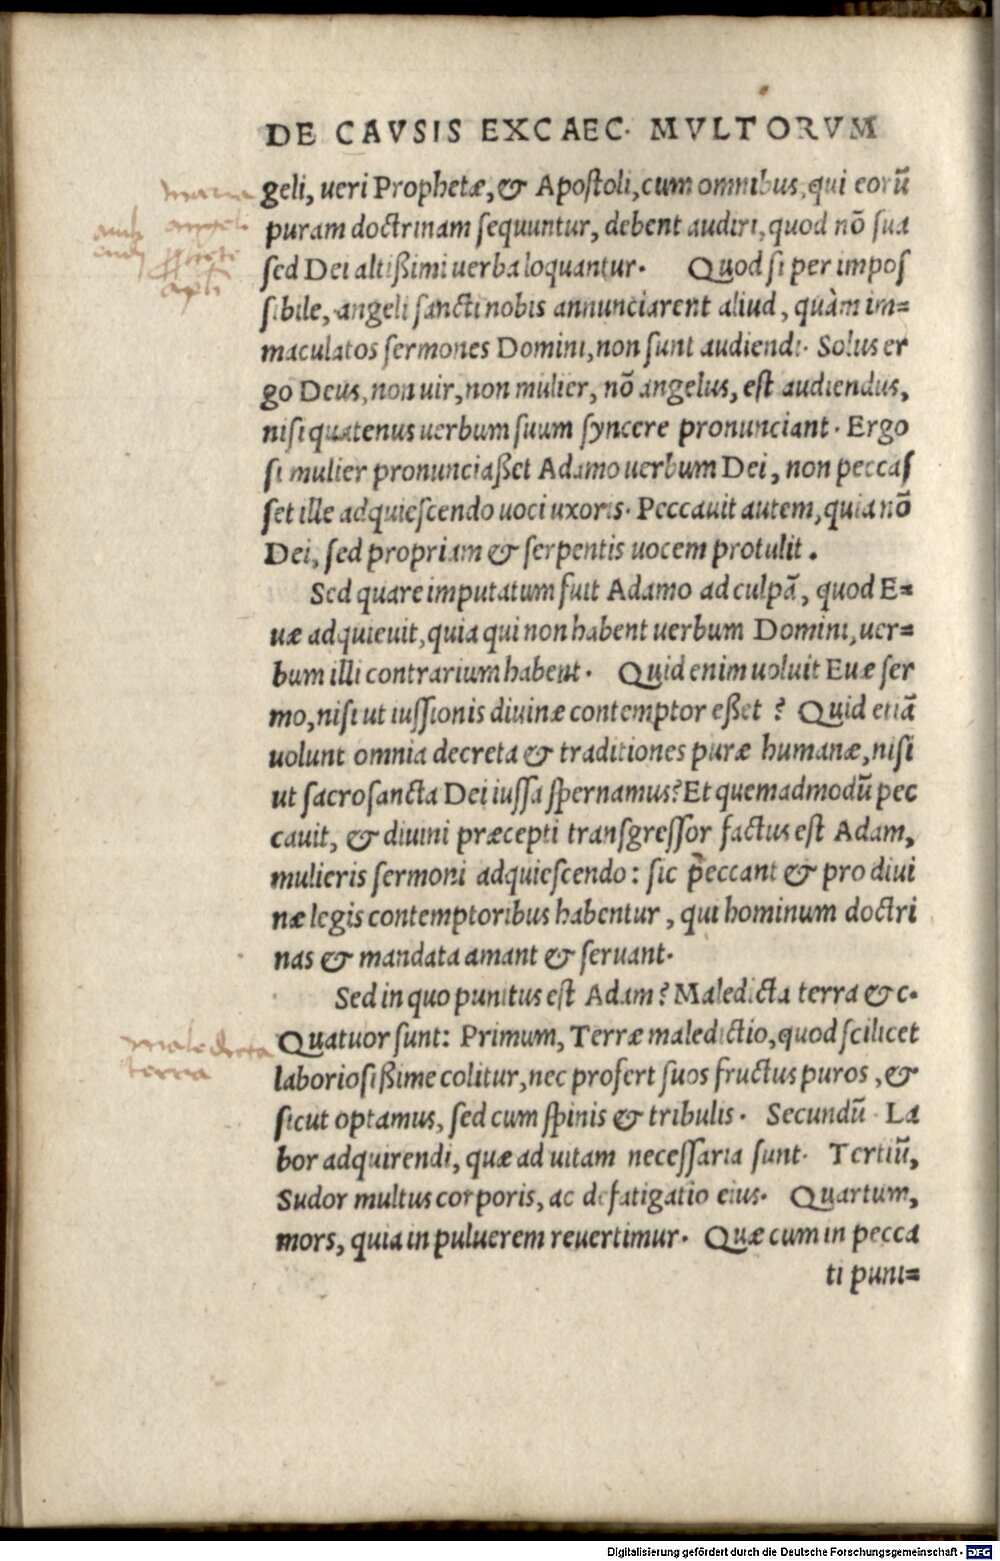 DE CAVSIS EXCAEC· MVLTORVM
geli, ueri Prophetæ, & Apoſtoli, cum omnibus, qui eorū
puram doctrinam ſequuntur, debent audiri, quod nō ſua
ſed Dei altißimi uerba loquantur· Quod ſi per impoſ
ſibile, angeli ſancti nobis annunciarent aliud, quàm im=
maculatos ſermones Domini, non ſunt audiendi· Solus er
go Deus, non uir, non mulier, nō angelus, eſt audiendus,
niſi quatenus uerbum ſuum ſyncere pronunciant· Ergo
ſi mulier pronunciaßet Adamo uerbum Dei, non peccaſ
ſet ille adquieſcendo uoci uxoris· Peccauit autem, quia nō
Dei, ſed propriam & ſerpentis uocem protulit.
Sed quare imputatum fuit Adamo ad culpā, quod E=
uæ adquieuit, quia qui non habent uerbum Domini, uer=
bum illi contrarium habent· Quid enim uoluit Euæ ſer
mo, niſi ut iuſſionis diuinæ contemptor eßet? Quid etiā
uolunt omnia decreta & traditiones puræ humanæ, niſi
ut ſacroſancta Dei iuſſa ſpernamus? Et quemadmodū pec
cauit, & diuini præcepti tranſgreſſor factus eſt Adam,
mulieris ſermoni adquieſcendo: ſic peccant & pro diui
næ legis contemptoribus habentur, qui hominum doctri
nas & mandata amant & ſeruant·
Sed in quo punitus eſt Adam? Maledicta terra & c·
Quatuor ſunt: Primum, Terræ maledictio, quod ſcilicet
laborioſißime colitur, nec profert ſuos fructus puros, &
ſicut optamus, ſed cum ſpinis & tribulis· Secundū La
bor adquirendi, quæ ad uitam neceſſaria ſunt· Tertiū,
Sudor multus corporis, ac defatigatio eius· Quartum,
mors, quia in puluerem reuertimur· Quæ cum in pecca
ti puni=
maria
angeli
maledicta
terra
Digitalisierung gefördert durch die Deutsche Forschungsgemeinschaft - DFG